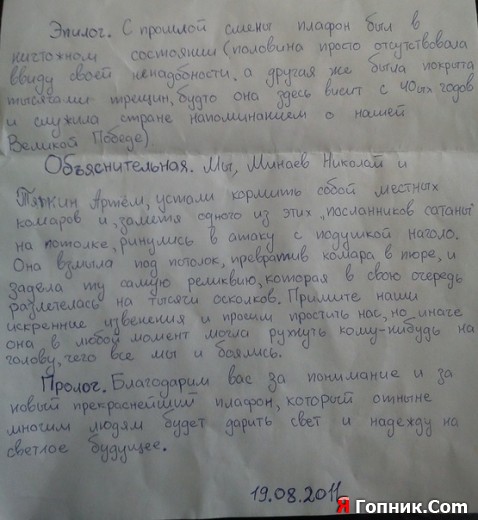 Эпилог. С прошлой смены плафон был в
ничтожном состоянии (половина просто отсутствовала
ввиду своей ненадобности, а другая же была покрыта
тысячами трещин, будто она здесь висит с 40ых годов
и служила стране напоминанием о нашей
Великой Победе)
Объяснительная. Мы, Минаев Николай и
Тяжкин Артём, устали кормить собой местных
комаров и, заметя одного из этих „посланников сатаны"
на потолке, ринулись в атаку с подушкой наголо.
Она взмыла под потолок, превратив комара в пюре, и
задела ту самую реликвию, которая в свою очередь
разлетелась на тысячи осколков. Примите наши
искренние извенения и просим простить нас, но иначе
она в любой момент могла рухнуть кому-нибудь на
голову, чего все мы и боялись.
Пролог. Благодарим вас за понимание и за
новый прекраснейший плафон, который отныне
многим людям будет дарить свет и надежду на
светлое будущее.
19.08.2011
Я Гопник.Com